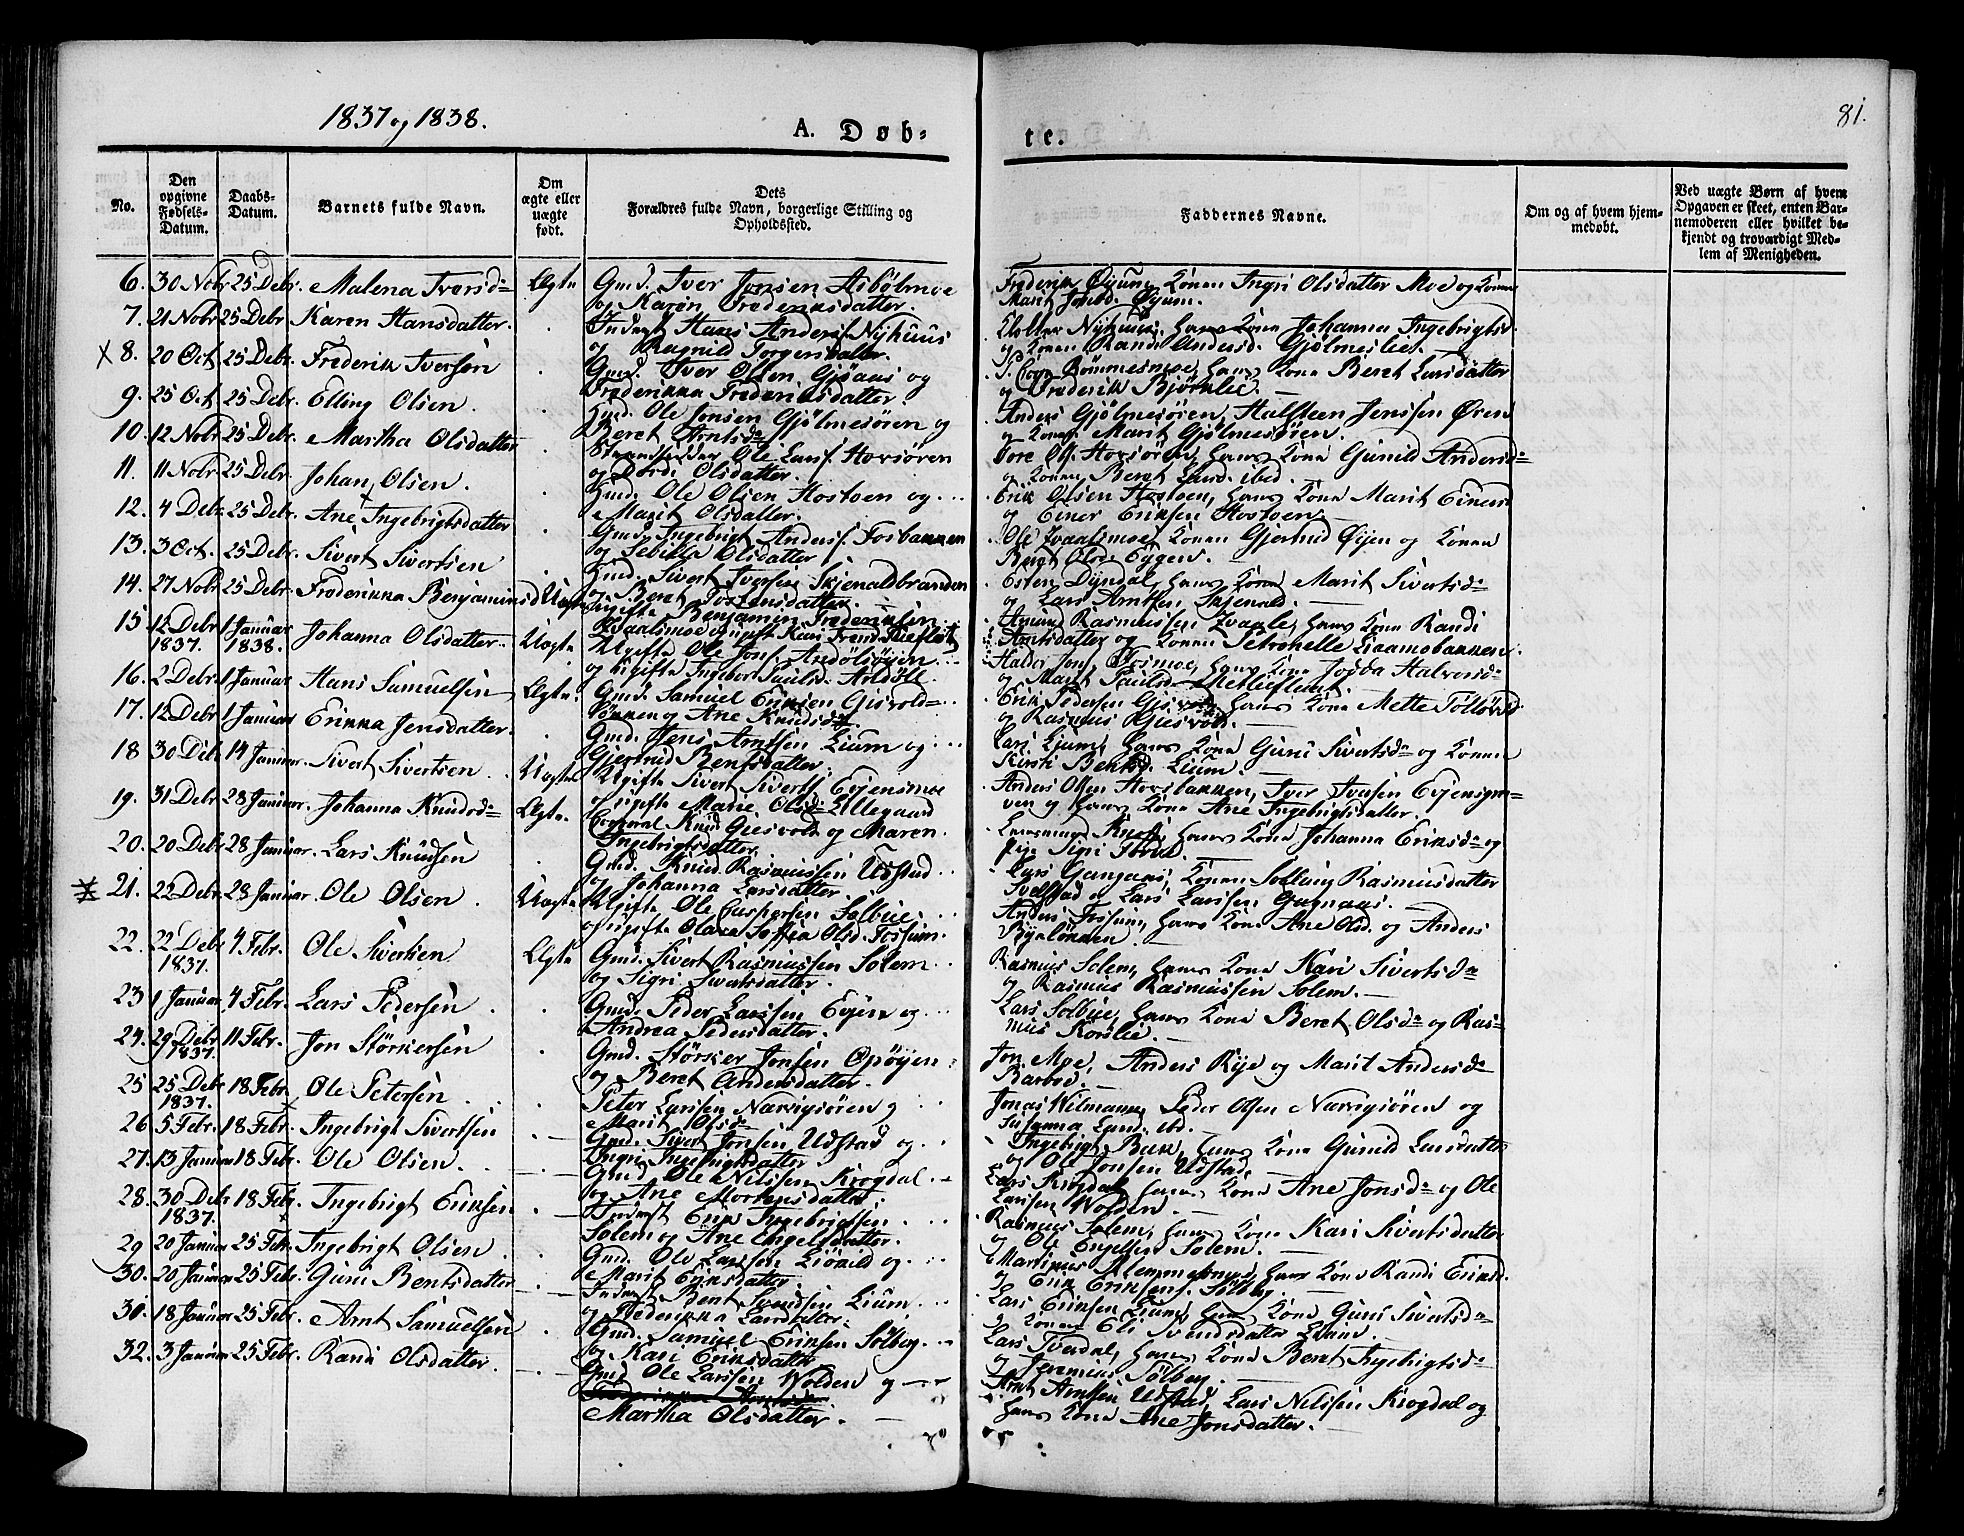 1837 og 1838.
A. Døb=
te.
81.
No.
Den opgivne Fødsels-Datum.
Daabs-Datum.
Barnets fulde Navn.
Om ægte eller uægte født.
Dets Forældres fulde Navn, borgerlige Stilling og Opholdssted.
Faddernes Navne.
Om og af hvem hjemmedøbt.
Ved uægte Børn af hvem Opgaven er skeet, enten Barnemoderen eller hvilket bekjendt og troværdigt Medlem af Menigheden.
6. 30 Nobr 25 Debr. Malena Iversd Ægte Gmd. Iver Jonsen Asbølmoe
og Karen Frederiksdatter.
Frederik Øyum, Konen Ingri Olsdatter Moe og Konen
Marit Jonsd. Øyum.
7. 21 Nobr 25 Debr Karen Hansdatter. Inderst Hans Anders. Nyhuus
og Ragnild Torgersdatter.
Nyhuus, hans Kone Johanna Ingebrigtsd.
og Konen Randi Andersd. Gjølmeslie.
8. 20 Oct. 25 Debr. Frederik Iversen Gmd. Iver Olsen Gjøaas og
Frederikka Frederiksdatter.
Rømmesmoe, hans Kone Beret Larsdatter
og Frederik Bjørnlie.
9. 25 Oct. 25 Debr. Elling Olsen. Ole Jensen Gjølmesøren og
Beret Arntsd
Anders Gjølmesøren, Halsteen Jenssen Øren
og Konen Marit Gjølmesøren.
10. 12 Nobr 25 Debr. Martha Olsdatter Strandsidder Ole Lars. Hovsøren
og Dordi Olsdatter.
Tore Ol. Hovsøren, hans Kone Gunild Andersd
og Konen Beret Larsd. ibid.
11. 11 Nobr. 25 Debr. Johan Olsen. Gmd. Ole Olsen Hostoen og
Marit Olsdatter.
Erik Olsen Hostoen, hans Kone Marit Einersd
og Einer Eriksen Hostoen
12. 4 Debr. 25 Debr. Ane Ingebrigtsdatter Gmd. Ingebrigt Anders. Fosbakken
og Sebilla Olsdatter.
Ole Kvaalsmoe, Konen Gjertrud Øijen og Konen
Olsd. Eggen.
13. 3 Oct. 25 Debr. Sivert Sivertsen Gmd. Sivert Iversen Skjenaldbranden
Beret Tostensdatter.
Esten Dyndal, hans Kone Marit Sivertsd
og Lars Arntsen Skjenald.
14. 27 Nobr 25 Debr. Frederikka Benjaminsd Uægte Ugifte Benjamin Frederiksen
Kvaalsmoe og ugifte Kari Refset
Rasmussen Kvaale, hans Kone Randi
Arntsdatter og Konen Petronelle Liaamobakken.
15 12 Debr 1837. 1 Januar 1838. Johanna Olsdatter Uægte Ugifte Ole Jons. Andølsøyen
og ugifte Ingebor Paulsd. Ardøll.
Haldor Jons. Mosmoe, hans Kone Halvorsd
og Marit Paulsd
16. 2 Debr 1 Januar Hans Samuelsen Ægte Gmd. Samuel Eriksen Gjesvold
og Ane Knudsd.
Erik Pedersen Gjesvold, hans Kone Mette Tollevsd
og Rasmus Gjesvold.
17. 12 Debr 1 Januar Erikka Jensdatter. Gmd. Jens Arntsen Lium og
Gjertrud Bentsdatter.
Lars Lium, hans Kone Guru Sivertsd og Konen
Kirsti Bentsd. Lium.
18 30 Debr. 14 Januar. Sivert Sivertsen Uægte Ugifte Sivert Siverts. Evjensmoe
og ugifte Marie Olsd Lillegaard
Anders Olsen Hovsbakken, Iver Iversen Evjens
og hans Kone Ane Ingebrigtsdatter.
19. 31 Debr. 28 Januar. Johanna Knudsd Ægte. Corporal Knud Gjesvold og Maren
Ingebrigtsdatter
hans Kone Johanna Eriksd og
Pige Sigri
20. 20 Debr. 28 Januar. Lars Knudsen Gmd. Knud Rasmussen Udstad
og Johanna Larsdatter
Lars Gangaas, Konen Solveig Rasmusdatter
Udstad og Lars Larssen Gagnaas.
21. 22 Debr. 28 Januar Ole Olsen. Uægte Ugifte Ole Caspersen Solbue.
og ugifte Olava Soffia Olsd. Fossum.
Anders Fossum, hans Kone Ane Olsd. og Anders
22. 22 Debr 1837. 4 Febr. Ole Sivertsen Ægte Gmd. Sivert Rasmussen Solem
og Sigri Sivertsdatter.
Rasmus Solem, hans Kone Kari Sivertsd
og Rasmus Rasmussen Solem.
23 1 Januar 4 Febr. Lars Pedersen Gmd. Peder Larssen Evjen og
Andrea Pedersdatter.
Lars Solbue, hans Kone Beret Olsd og Ras=
mus Korslie.
24. 29 Debr 1837. 11 Febr. Jon Størkersen Gmd. Størker Jonsen Opøyen
og Beret Andersdatter.
Jon Moe, Anders Rye og Marit Andersd
Barboe.
25 25 Debr 1837. 18 Febr. Ole Petersen. Peter Larssen Narvigsøren og
Marit Olsd
Jonas Wilmann, Peder Olsen Narvigsøren og
Susanna Larsd. ibd.
26 5 Febr. 18 Febr. Ingebrigt Sivertsen Gmd. Sivert Jonsen Udstad og
Ingri Ingebrigtsdatter
Ingebrigt Bak, hans Kone Gunild Larsdatter
og Ole Jonsen Udstad.
27. 13 Januar 18 Febr. Ole Olsen. Gmd. Ole Nilssen Krogdal
og Ane Mortensdatter.
Lars Krogdal, hans Kone Ane Jonsd og Ole
Larssen Wolden.
28. 30 Debr 1837. 18 Febr. Ingebrigt Eriksen Inderst Erik Ingebrigtsen
Solem og Ane Engelsdatter.
Rasmus Solem, hans Kone Kari Sivertsdatter
og Ole Engelsen Solem.
29 20 Januar 25 Febr. Ingebrigt Olsen. Gmd. Ole Larssen Liøkild og
Marit Eriksdatter.
Martinus Klemmetsmoe, hans Kone Randi Eriksd.
og Erik Eriksens. Solberg.
30. 20 Januar 25 Febr. Guru Bentsdatter Inderst Bent Svendsen Lium
og Frederikka Larsdatter.
Lars Eriksen Lium, hans Kone Guru Sivertsd
og Konen Eli Svendsdatter Lium.
30. 18 Januar 25 Febr. Arnt Samuelsen Gmd. Samuel Eriksen Solberg
og Kari Eriksdatter
Lars Tverdal, hans Kone Beret Ingebrigtsd
og Jeremias Solberg.
32. 3 Januar 25 Febr. Randi Olsdatter. Gmd Ole Larssen Wolden og
Martha Olsdatter.
Arnt Arntsen Udstad, Lars Nilssen Krogdal og
hans Kone Ane Jonsdatter.